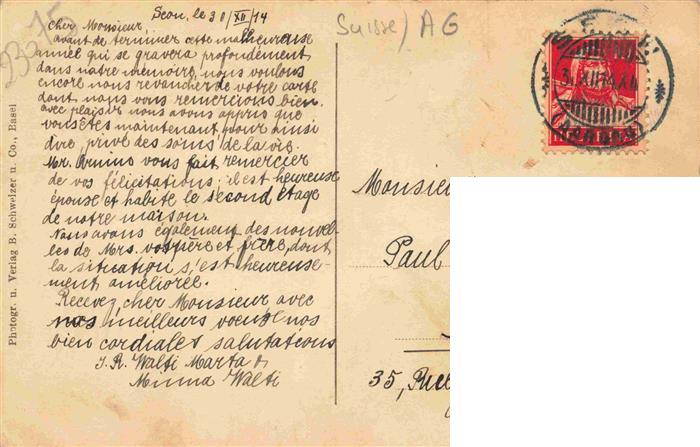 Seon, le 30/XII/14
Cher Monsieur,
avant de terminer cette malheureuse
année qui se gravera profondément
dans notre mémoire, nous voulons
encore nous revancher de votre carte
dont nous vous remercions bien.
avec plaisir nous avons appris que
vous êtes maintenant pour ainsi
dire, privé des soins de la vie.
Mr. Bruno vous fait remercier
de vos félicitations; il est heureuse
épouse et habite le second étage
de notre maison.
Nous avons également des nouvel-
les de Mrs. vos père et frère, dont
la situation s'est heureuse-
ment améliorée.
Recevez, cher Monsieur avec
nos meilleurs voeux nos
bien cordiales salutations
J. R. Walti Marta &
Minna Walti
Photogr. u. Verlag B. Schweizer u. Co., Basel
Suisse/AG
SEON
31.XII.14.XII
(AARGAU)
Monsieur
Paul
35, Rue